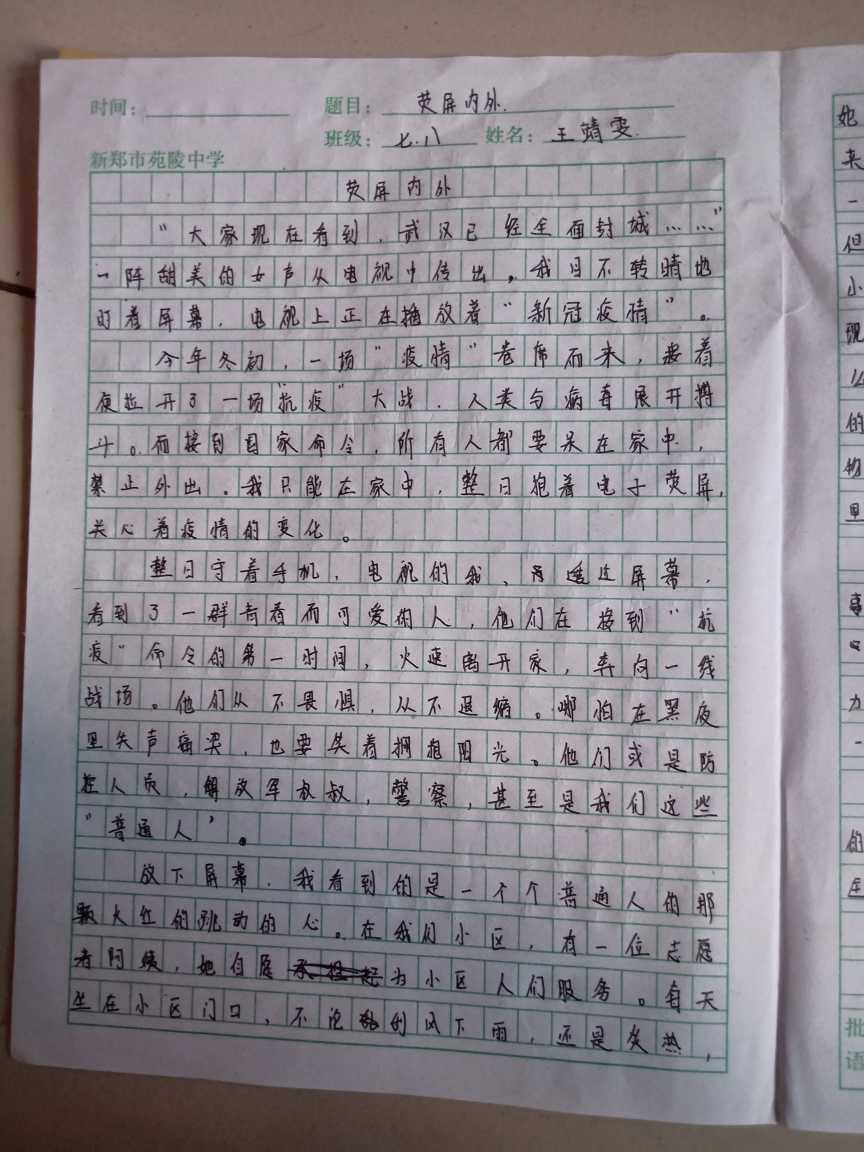 时间： 题目： 荧屏内外.
班级： 七.八 姓名： 王靖雯.
新郑市苑陵中学
荧屏内外
“大家现在看到，武汉已经全面封城……”
一阵甜美的女声从电视中传出。我目不转睛地
盯着屏幕，电视上正在播放着“新冠疫情”。
今年冬初，一场“疫情”卷席而来，接着
便拉开了一场“抗疫”大战，人类与病毒展开搏
斗。而接到国家命令，所有人都要呆在家中，
禁止外出。我只能在家中，整日抱着电子荧屏，
关心着疫情的变化。
整日守着手机，电视的我、透过屏幕，
看到了一群青春而可爱的人，他们在接到“抗
疫”命令的第一时间，火速离开家，奔向一线
战场。他们从不畏惧，从不退缩。哪怕在黑夜
里失声痛哭，也要笑着拥抱阳光。他们或是防
控人员，解放军叔叔，警察，甚至是我们这些
“普通人”。
放下屏幕，我看到的是一个个普通人的那
颗火红的跳动的心。在我们小区，有一位志愿
者阿姨，她自愿为小区人们服务。每天
坐在小区门口，不论刮风下雨，还是炎热，
她
一
但
小
现
的
物
里
事
力
一
的
批
语